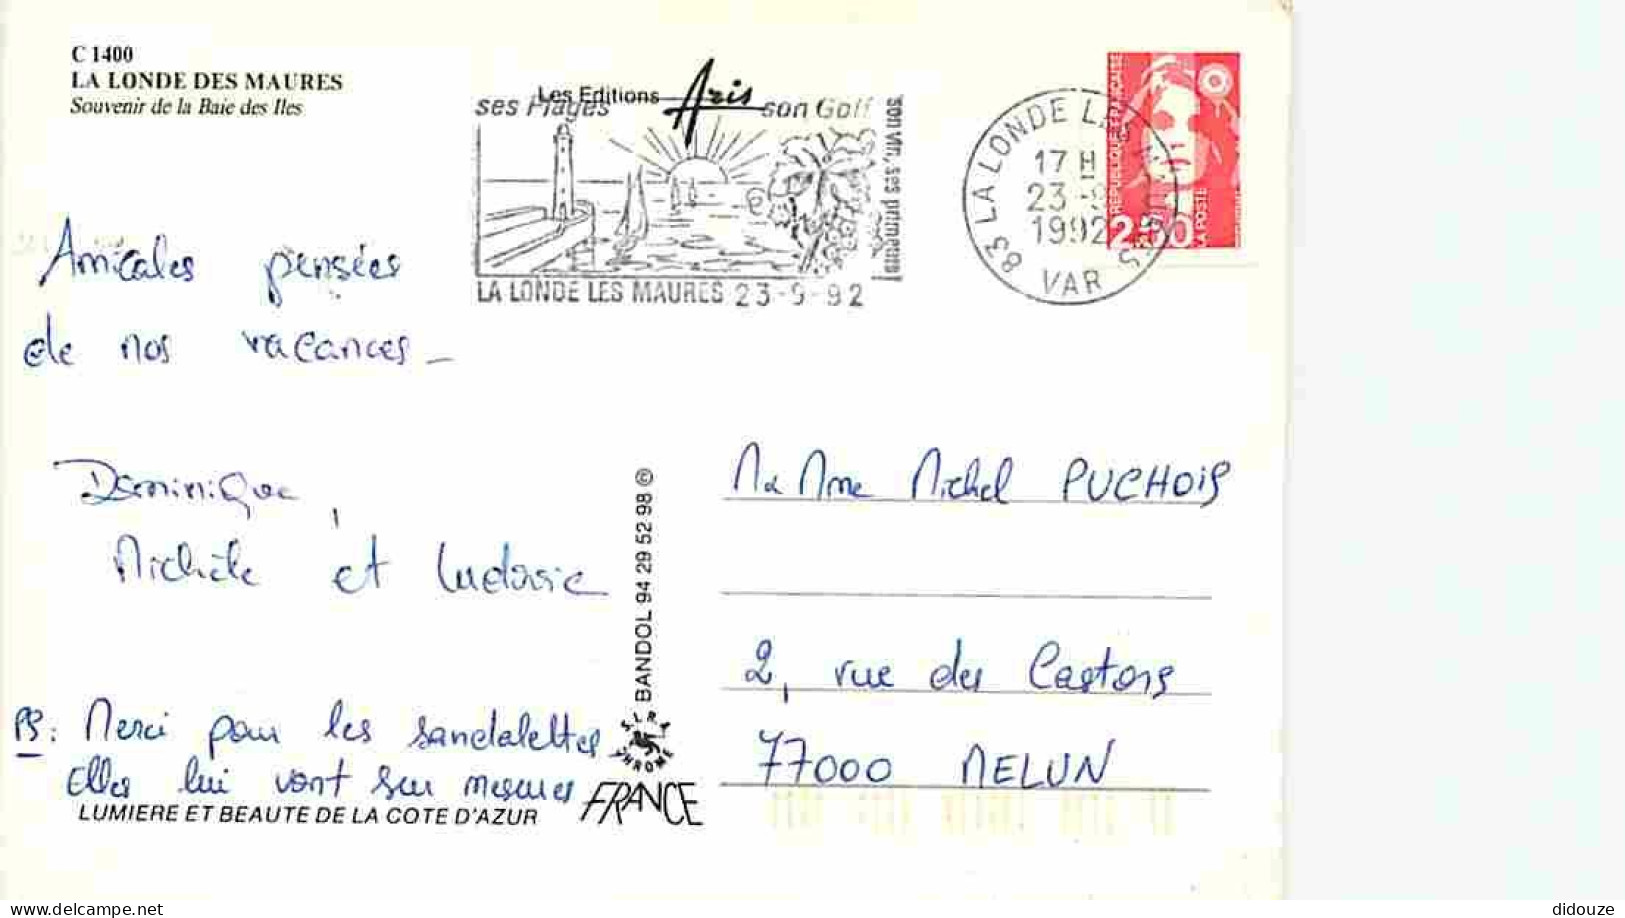 C 1400
LA LONDE DES MAURES
Souvenir de la Baie des Iles
Les Editions Aris
ses Plages son Golf
son vin, ses primeurs!
LA LONDE LES MAURES 23-9-92
83 LA LONDE LES MAURES
17 H
23 -9
1992
VAR
REPUBLIQUE FRANÇAISE
2,50
LA POSTE
Amicales pensées
de nos vacances_
Dominique,
Michèle et Ludovic
PS: Merci pour les sandalettes
Elles lui vont sur mesures
LUMIERE ET BEAUTE DE LA COTE D'AZUR
BANDOL 94 29 52 98 ©
S.I.R.A.
CHROME
FRANCE
M & Mme Michel PUCHOIS
2, rue des Castors
77000 MELUN
delcampe.net
didouze